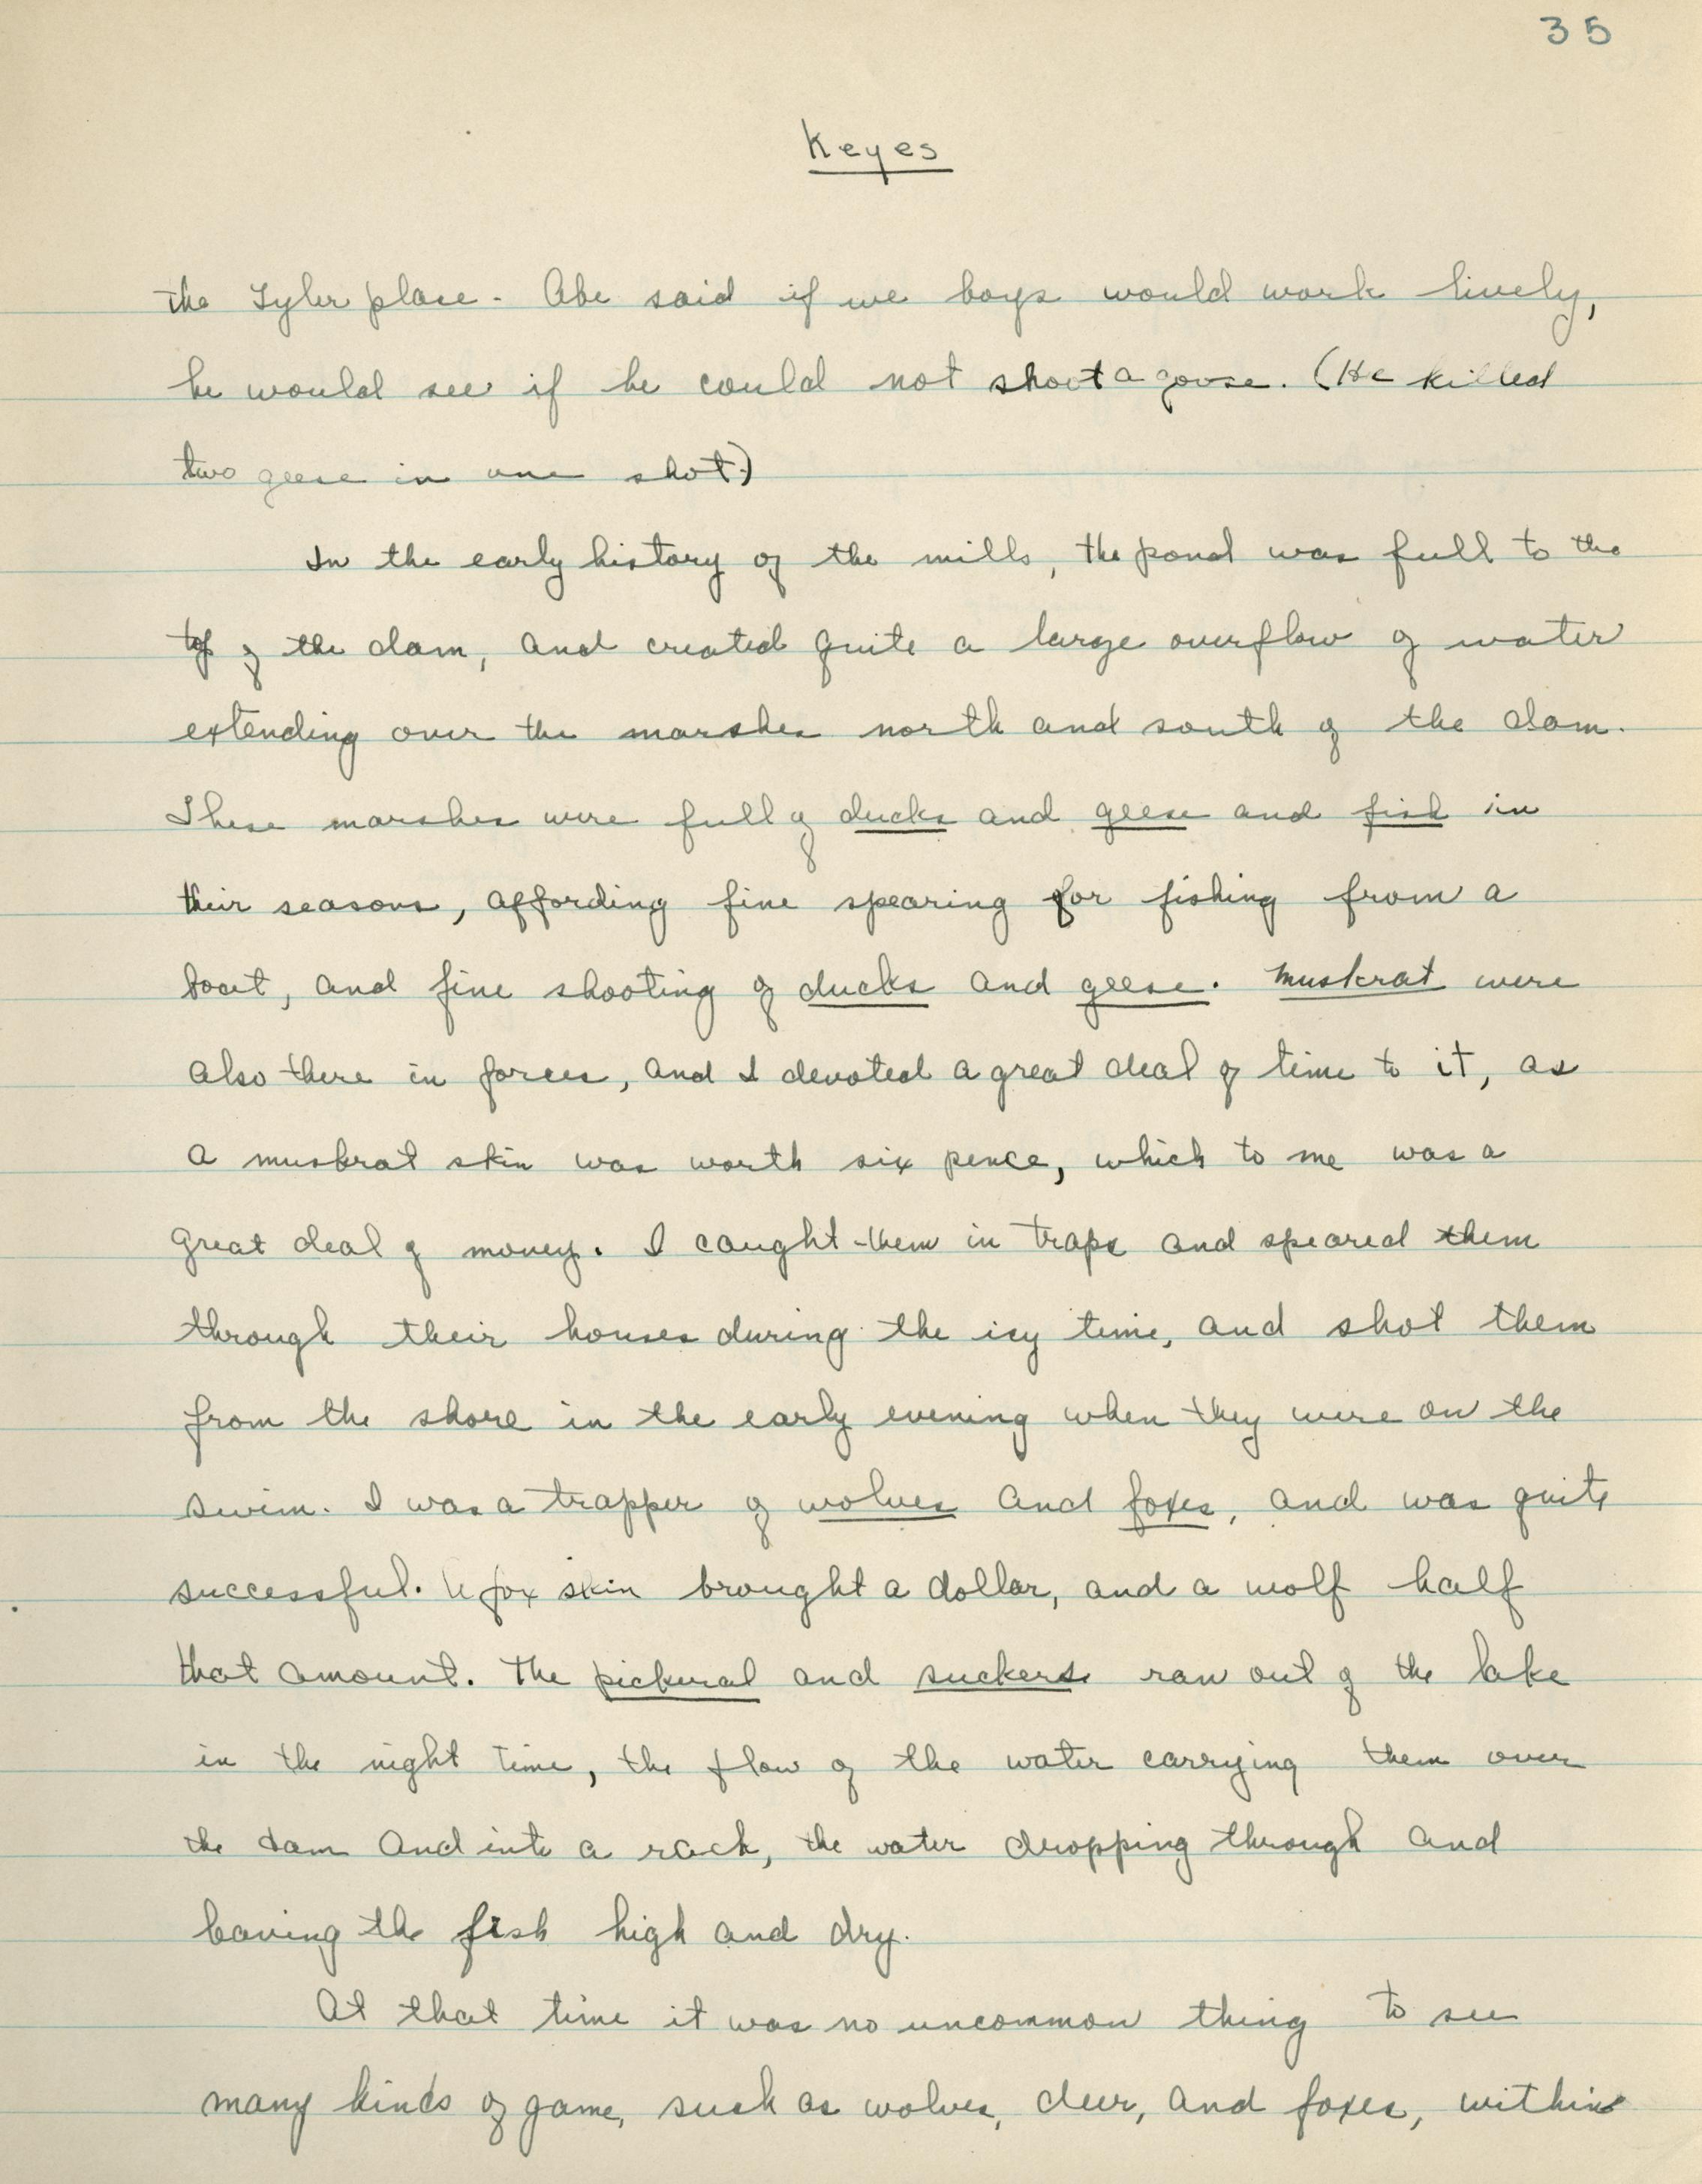 35
Keyes
the Tyler place. Abe said if we boys would work lively,
he would see if he could not shoot a goose. (He killed
two geese in one shot)
In the early history of the mills, the pond was full to the
top of the dam, and created quite a large overflow of water
extending over the marshes north and south of the dam.
These marshes were full of ducks and geese and fish in
their seasons, affording fine spearing for fishing from a
boat, and fine shooting of ducks and geese. Muskrat were
also there in forces, and I devoted a great deal of time to it, as
a muskrat skin was worth six pence, which to me was a
great deal of money. I caught them in traps and speared them
through their houses during the icy time, and shot them
from the shore in the early evening when they were on the
swim. I was a trapper of wolves and foxes, and was quite
successful. A fox skin brought a dollar, and a wolf half
that amount. The pickeral and suckers ran out of the lake
in the night time, the flow of the water carrying them over
the dam and into a rack, the water dropping through and
leaving the fish high and dry.
At that time it was no uncommon thing to see
many kinds of game, such as wolves, deer, and foxes, within